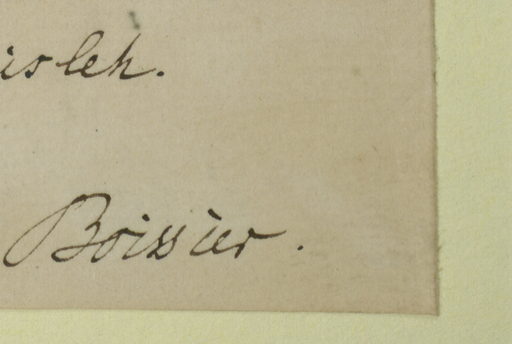 isleh.
Boissier.